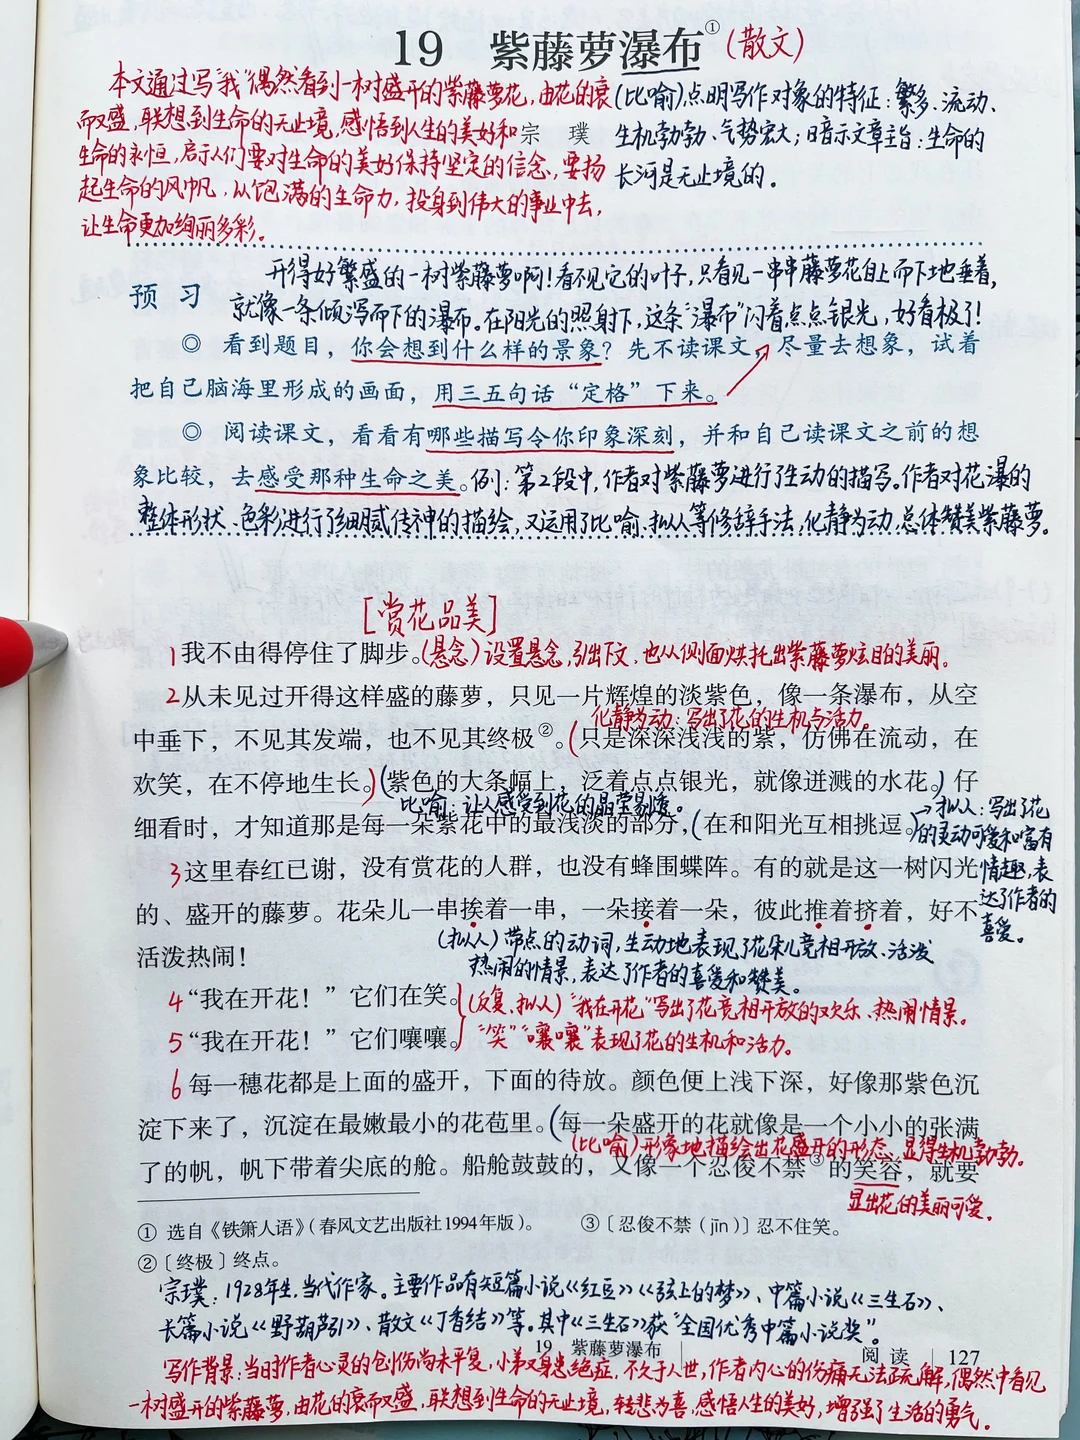 19 紫藤萝瀑布①(散文)
本文通过写“我”偶然看到一树盛开的紫藤萝花,由花的衰
而又盛,联想到生命的无止境,感悟到人生的美好和
生命的永恒,启示人们要对生命的美好保持坚定的信念,要扬
起生命的风帆,从饱满的生命力,投身到伟大的事业中去,
让生命更加绚丽多彩。
宗 璞
(比喻)点明写作对象的特征:繁多、流动、
生机勃勃、气势宏大;暗示文章主旨:生命的
长河是无止境的。
预 习
开得好繁盛的一树紫藤萝啊!看不见它的叶子,只看见一串串藤萝花自上而下地垂着,
就像一条倾泻而下的瀑布。在阳光的照射下,这条“瀑布”闪着点点银光,好看极了!
◎ 看到题目,你会想到什么样的景象?先不读课文,尽量去想象,试着
把自己脑海里形成的画面,用三五句话“定格”下来。
◎ 阅读课文,看看有哪些描写令你印象深刻,并和自己读课文之前的想
象比较,去感受那种生命之美。例:第2段中,作者对紫藤萝进行了生动的描写。作者对花瀑的
整体形状、色彩进行了细腻传神的描绘,又运用了比喻、拟人等修辞手法,化静为动,总体赞美紫藤萝。
[赏花品美]
1我不由得停住了脚步。(悬念)设置悬念,引出下文,也从侧面烘托出紫藤萝炫目的美丽。
2从未见过开得这样盛的藤萝,只见一片辉煌的淡紫色,像一条瀑布,从空
化静为动:写出了花的生机与活力。
中垂下,不见其发端,也不见其终极②。(只是深深浅浅的紫,仿佛在流动,在
欢笑,在不停地生长。)(紫色的大条幅上,泛着点点银光,就像迸溅的水花。)仔
比喻:让人感受到花的晶莹易逝。
细看时,才知道那是每一朵紫花中的最浅淡的部分,(在和阳光互相挑逗。)
→拟人:写出了花
的灵动可爱和富有
情趣,表
达了作者的
喜爱。
3这里春红已谢,没有赏花的人群,也没有蜂围蝶阵。有的就是这一树闪光
的、盛开的藤萝。花朵儿一串挨着一串,一朵接着一朵,彼此推着挤着,好不
活泼热闹!
(拟人)带点的动词,生动地表现了花朵儿竞相开放、活泼
热闹的情景,表达了作者的喜爱和赞美。
4“我在开花!”它们在笑。
(反复、拟人)“我在开花”写出了花竞相开放的欢乐、热闹情景。
5“我在开花!”它们嚷嚷。
“笑”“嚷嚷”表现了花的生机和活力。
6每一穗花都是上面的盛开,下面的待放。颜色便上浅下深,好像那紫色沉
淀下来了,沉淀在最嫩最小的花苞里。(每一朵盛开的花就像是一个小小的张满
(比喻)形象地描绘出花盛开的形态,显得生机勃勃。
了的帆,帆下带着尖底的舱。船舱鼓鼓的,又像一个忍俊不禁③的笑容,就要
显出花的美丽可爱。
① 选自《铁箫人语》(春风文艺出版社1994年版)。 ③〔忍俊不禁(jīn)〕忍不住笑。
②〔终极〕终点。
宗璞:1928年生,当代作家。主要作品有短篇小说《红豆》《弦上的梦》、中篇小说《三生石》、
长篇小说《野葫芦引》、散文《丁香结》等。其中《三生石》获“全国优秀中篇小说奖”。
19 紫藤萝瀑布 阅 读 127
写作背景:当时作者心灵的创伤尚未平复,小弟又身患绝症,不久于人世,作者内心的伤痛无法疏解,偶然中看见
一树盛开的紫藤萝,由花的衰而又盛,联想到生命的无止境,转悲为喜,感悟人生的美好,增强了生活的勇气。